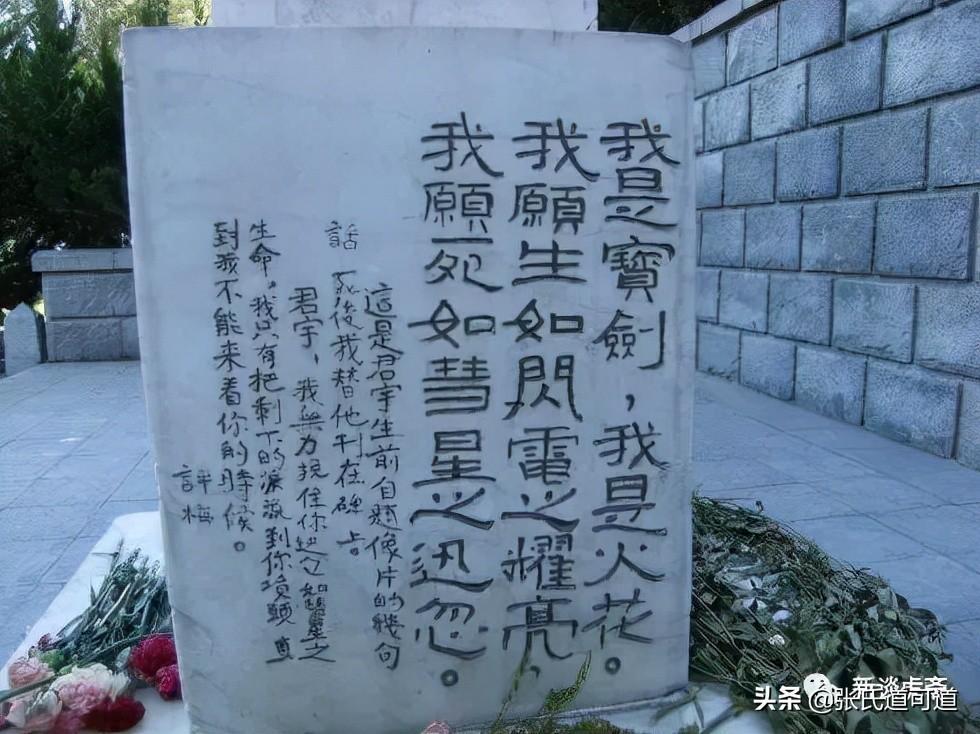 我是寶劍，我是火花。
我願生如閃電之耀亮，
我願死如彗星之迅忽。
這是君宇生前自題像片的幾句
話 死後我替他刊在碑上。
君宇，我無力挽住你迅忽如彗星之
生命，我只有把剩下的淚流到你墳頭 直
到我不能來看你的時候。
評梅
新淡斋
头条 @张氏道可道